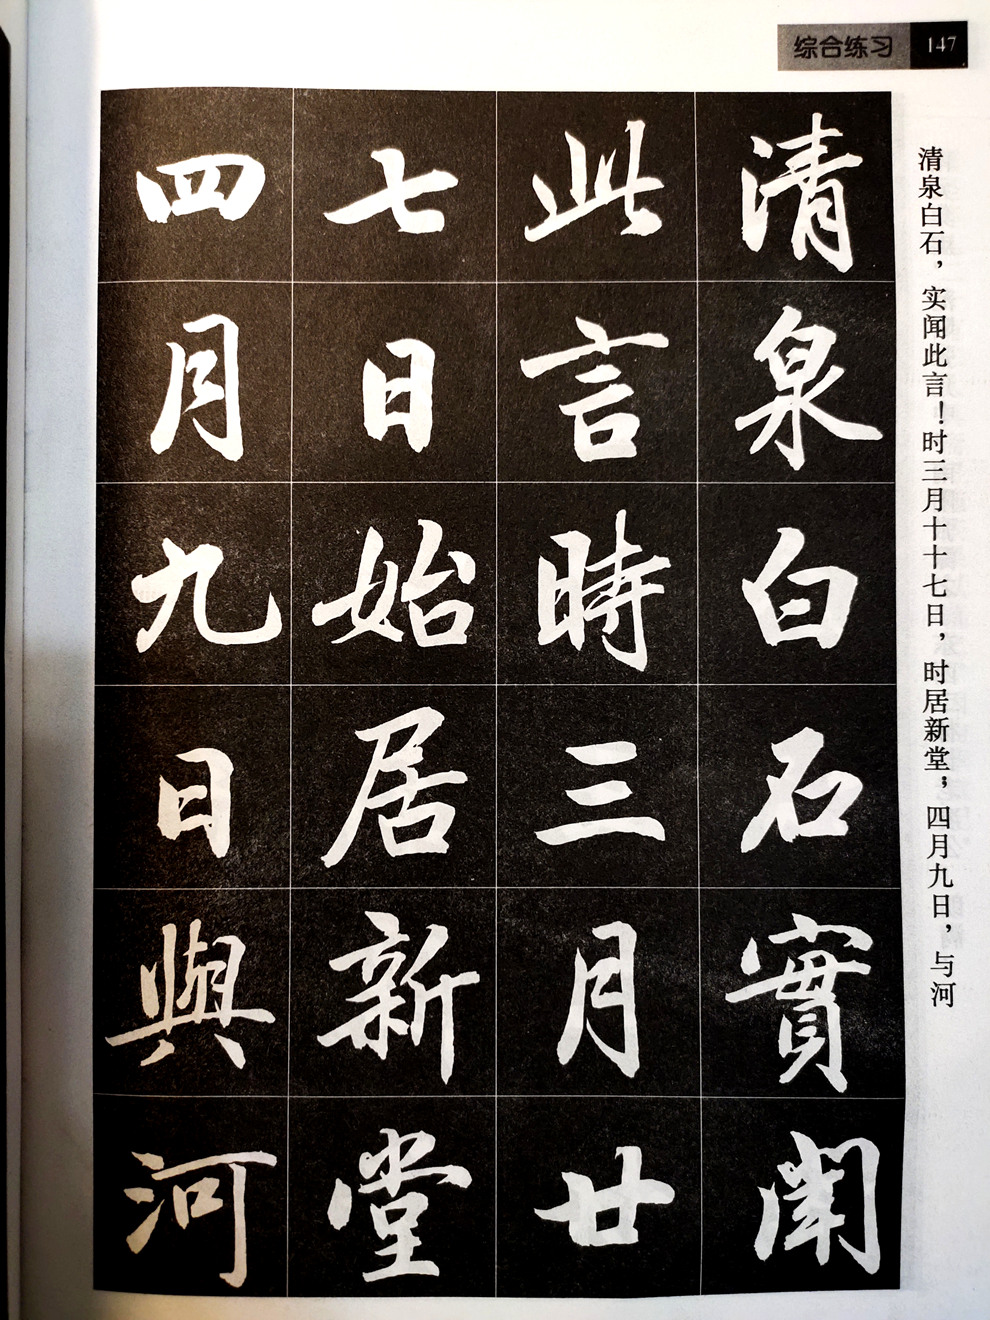 综合练习 147
清泉白石，实闻此言！时三月十十七日，时居新堂；四月九日，与河
清泉白石實聞
此言時三月廿
七日始居新堂
四月九日與河